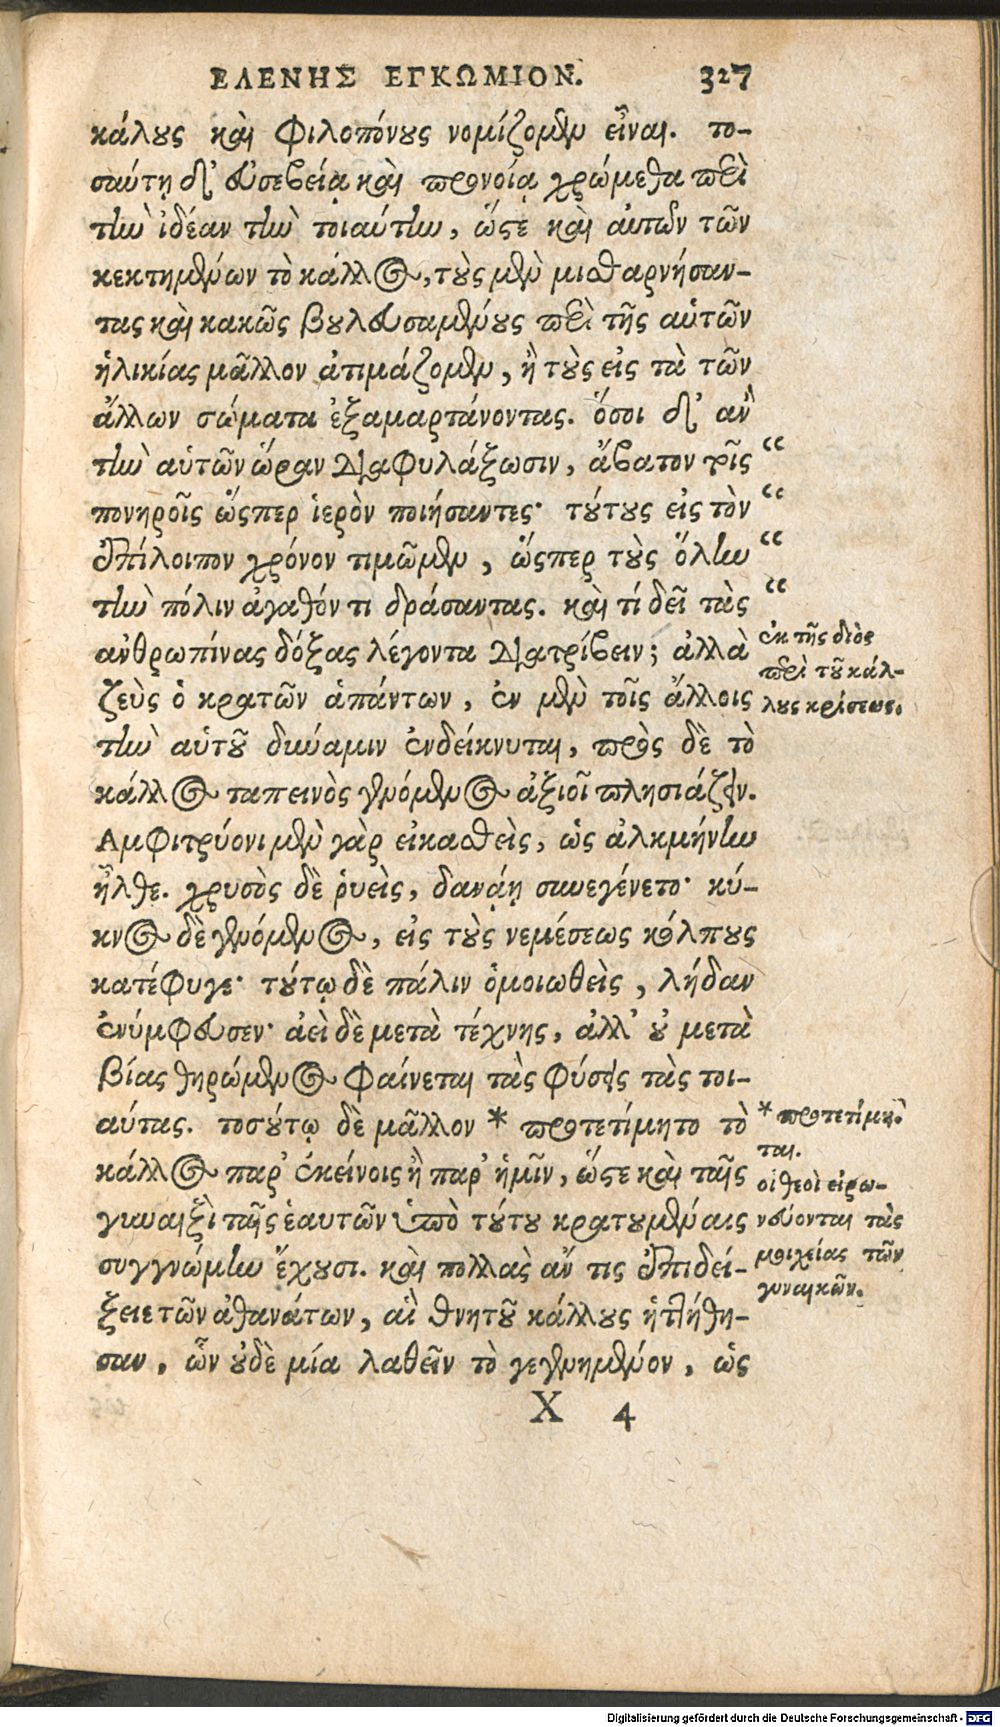 ΕΛΕΝΗΣ ΕΓΚΩΜΙΟΝ. 327
κάλους καὶ φιλοπόνους νομίζομεν εἶναι. το-
σαύτῃ δ' εὐσεβείᾳ καὶ προνοίᾳ χρώμεθα περὶ
τὴν ἰδέαν τὴν τοιαύτην, ὥστε καὶ αὐτῶν τῶν
κεκτημένων τὸ κάλλος, τοὺς μὲν μισθαρνήσαν-
τας καὶ κακῶς βουλευσαμένους περὶ τῆς αὑτῶν
ἡλικίας μᾶλλον ἀτιμάζομεν, ἢ τοὺς εἰς τὰ τῶν
ἄλλων σώματα ἐξαμαρτάνοντας. ὅσοι δ' ἂν
τὴν αὑτῶν ὥραν διαφυλάξωσιν, ἄβατον τοῖς “
πονηροῖς ὥσπερ ἱερὸν ποιήσαντες· τούτους εἰς τὸν “
ἐπίλοιπον χρόνον τιμῶμεν, ὥσπερ τοὺς ὅλην “
τὴν πόλιν ἀγαθόν τι δράσαντας. καὶ τί δεῖ τὰς “
ἀνθρωπίνας δόξας λέγοντα διατρίβειν; ἀλλὰ
ζεὺς ὁ κρατῶν ἁπάντων, ἐν μὲν τοῖς ἄλλοις
τὴν αὑτοῦ δύναμιν ἐνδείκνυται, πρὸς δὲ τὸ
κάλλος ταπεινὸς γενόμενος ἀξιοῖ πλησιάζειν.
Αμφιτρύονι μὲν γὰρ εἰκασθεὶς, ὡς ἀλκμήνην
ἦλθε. χρυσὸς δὲ ῥυεὶς, δανάῃ συνεγένετο· κύ-
κνος δὲ γενόμενος, εἰς τοὺς νεμέσεως κόλπους
κατέφυγε· τούτῳ δὲ πάλιν ὁμοιωθεὶς, λήδαν
ἐνύμφευσεν· ἀεὶ δὲ μετὰ τέχνης, ἀλλ' οὐ μετὰ
βίας θηρώμενος φαίνεται τὰς φύσεις τὰς τοι-
αύτας. τοσούτῳ δὲ μᾶλλον * προτετίμητο τὸ
κάλλος παρ' ἐκείνοις ἢ παρ' ἡμῖν, ὥστε καὶ ταῖς
γυναιξὶ ταῖς ἑαυτῶν ὑπὸ τούτου κρατουμέναις
συγγνώμην ἔχουσι. καὶ πολλὰς ἄν τις ἐπιδεί-
ξειε τῶν ἀθανάτων, αἳ θνητοῦ κάλλους ἡττήθη-
σαν, ὧν οὐδὲ μία λαθεῖν τὸ γεγενημένον, ὡς
X 4
ἐκ τῆς διὸς
περὶ τοῦ κάλ-
λους κρίσεως.
* προτετίμη-
ται.
οἱ θεοὶ εἰρω-
νεύονται τὰς
μοιχείας τῶν
γυναικῶν.
Digitalisierung gefördert durch die Deutsche Forschungsgemeinschaft - DFG